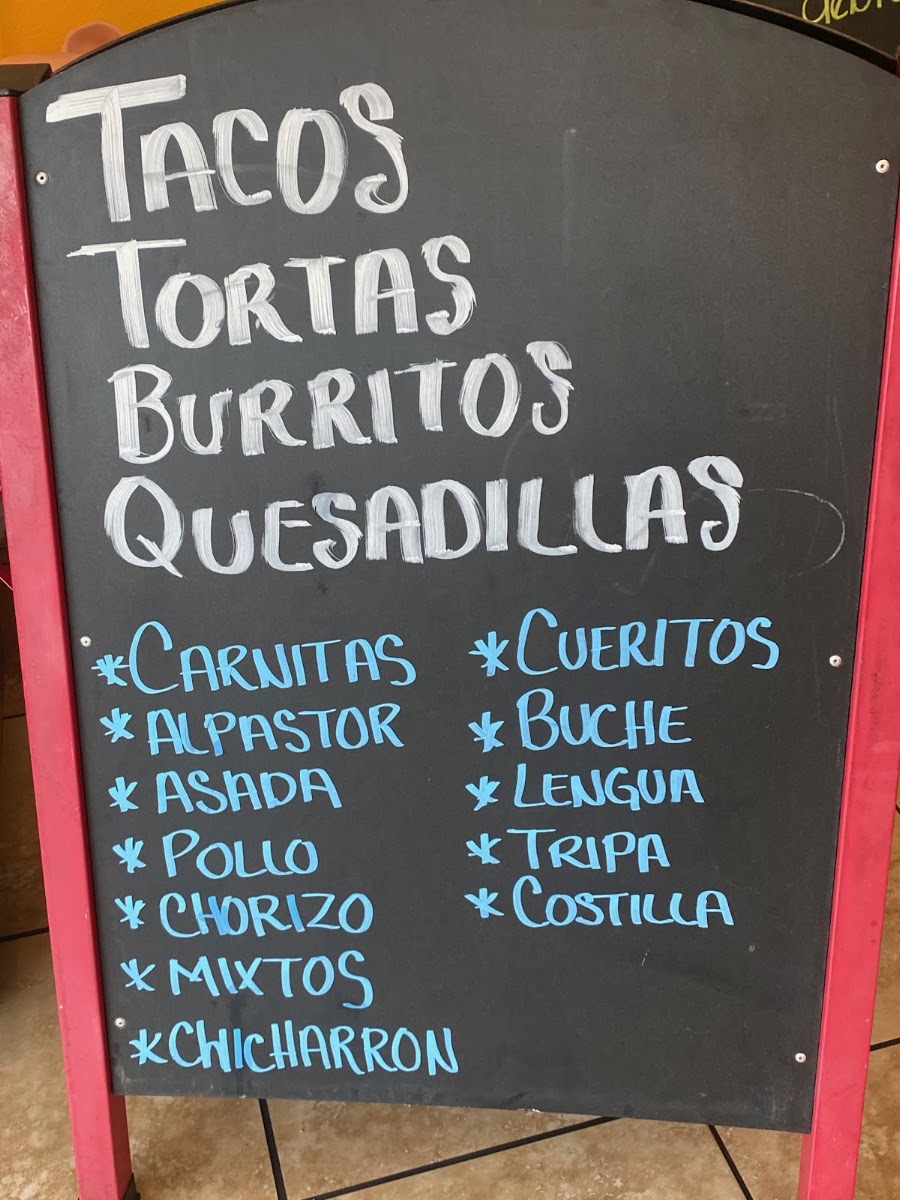 TACOS
TORTAS
BURRITOS
QUESADILLAS
*CARNITAS
*ALPASTOR
*ASADA
*POLLO
*CHORIZO
*MIXTOS
*CHICHARRON
*CUERITOS
*BUCHE
*LENGUA
*TRIPA
*COSTILLA